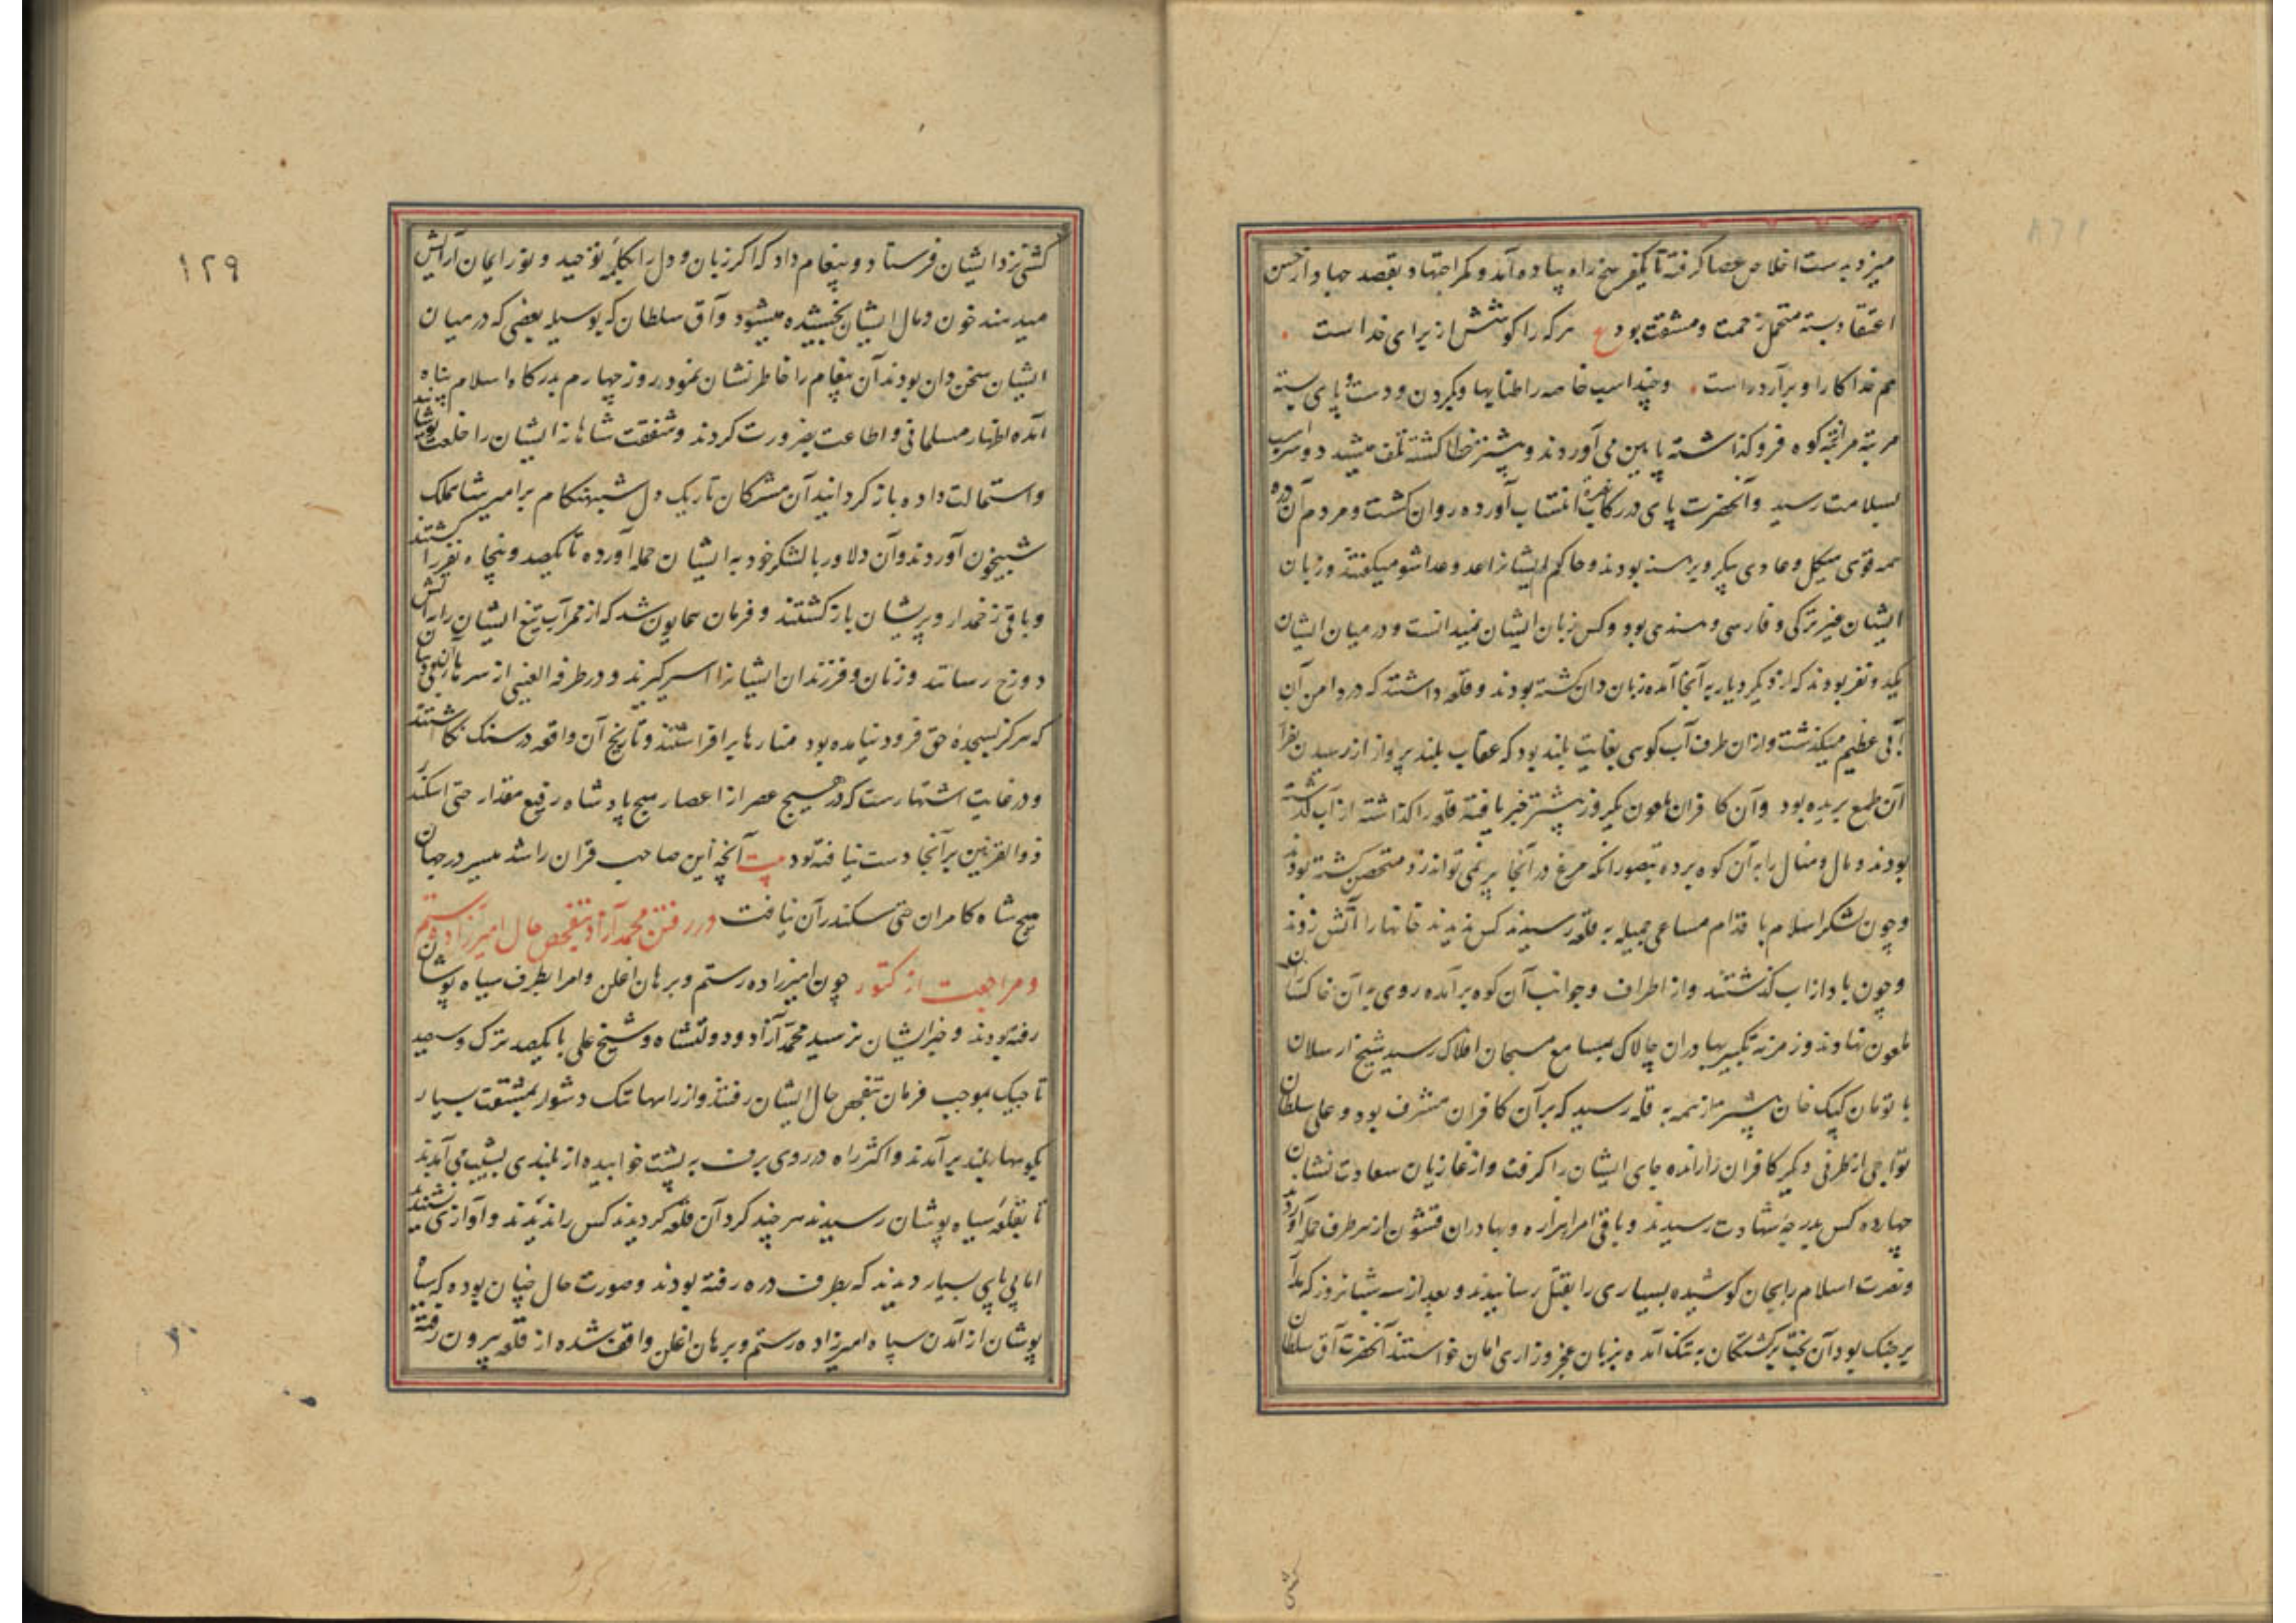 میزد بدست اخلاص عصا گرفته تا یکفرسخ راه پیاده آمد و کمر اجتهاد بقصد جهاد از حسن
اعتقاد بسته متحمل زحمت و مشقت بود ع هر که را کوشش از برای خداست
هم خدا کار او برآورد راست وچند اسب خاصه را طنابها و بگردن و دست و پای بسته
مرتبه مرتبه کوه فروگذاشته پایین می آوردند و بیشتر خطا گشته تلف میشد دو سر اسب
بسلامت رسید و آنحضرت پای در رکاب انتساب آورده روان گشت و مردم آن دره
همه قوی هیکل و عادی پیکر و برهنه بودند و حاکم ایشانرا عدو عداشو میگفتند و زبان
ایشان غیر ترکی و فارسی و هندی بود و کس زبان ایشان نمیدانست و در میان ایشان
یکدو نفر بودند که از دیگر دیار به آنجا آمده زبان دان گشته بودند و قلعه داشتند که در دامن آن
آبی عظیم میگذشت و ازان طرف آب کوهی بغایت بلند بود که عقاب بلند پرواز از رسیدن بفراز
آن طمع بریده بود و آن کافران ملعون یکروز پیشتر خبر یافته قلعه را گذاشته از آب گذشته
بودند و مال و منال را به آن کوه برده بتصور انکه مرغ در آنجا پر نمی تواند زد متحصن گشته بودند
و چون لشکر اسلام باقدام مساعی جمیله به قلعه رسیدند کس ندیدند خانها را آتش زدند
و چون باد از اب گذشتند و از اطراف و جوانب آن کوه برآمده روی به آن خاکساران
ملعون نهادند و زمزمه تکبیر بهادران چالاک بمسامع مسبحان افلاک رسید شیخ ارسلان
با تومان کپک خان پیشتر از همه به قله رسید که بر آن کافران مشرف بود و علی سلطان
تواجی از طرفی دیگر کافران را رانده جای ایشان را گرفت و از غازیان سعادت نشان
چهارده کس بدرجه شهادت رسیدند و باقی امرا هزاره و بهادران قشون از هر طرف حمله آورده
ونصرت اسلام را بجان کوشیده بسیاری را بقتل رسانیدند و بعد از سه شبانروز که مدار
بر جنگ بود آن بخت برگشتگان به تنگ آمده بزبان عجز و زاری امان خواستند آنحضرت آق سلطان
۱۲۹
کشی نزد ایشان فرستاد و پیغام داد که اگر زبان و دل را بکلمه توحید و نور ایمان آرایش
میدهند خون و مال ایشان بخشیده میشود و آق سلطان که بوسیله بعضی که در میان
ایشان سخن دان بودند آن پیغام را خاطر نشان نمود روز چهارم بدرگاه اسلام پناه
آمده اظهار مسلمانی و اطاعت بضرورت کردند و شفقت شاهانه ایشان را خلعت پوشانیده
و استمالت داده باز گردانید آن مشرکان تاریک دل شبهنگام بر امیر شاهملک
شبیخون آوردند و آن دلاور با لشکر خود به ایشان حمله آورده تا یکصد و پنجاه نفر را کشتند
و باقی زخمدار و پریشان باز گشتند و فرمان همایون شد که از ممر آب تیغ ایشان را به آتش
دوزخ رسانند و زنان و فرزندان ایشانرا اسیر گیرند و در طرفه العینی از سر آن بیدینان
که هرگز بسجده حق فرود نیامده بود منارها برافراشتند و تاریخ آن واقعه در سنگ نگاشتند
و در غایت اشتهارست که در هیچ عصر از اعصار هیچ پادشاه رفیع مقدار حتی اسکندر
ذوالقرنین بر آنجا دست نیافته بود بیت آنچه این صاحب قران را شد میسر در جهان
هیچ شاه کامران حتی سکندر آن نیافت در رفتن محمد آزاد بتفحص حال امیرزاده رستم
و مراجعت از کتور چون امیرزاده رستم و برهان اغلن و امرا بطرف سیاه پوشان
رفته بودند و خبر ایشان نرسید محمد آزاد و دولتشاه و شیخ علی با یکصد ترک و سیصد
تاجیک بموجب فرمان بتفحص حال ایشان رفتند و از راهها تنک دشوار بمشقت بسیار
بکوهها بلند برآمدند و اکثر راه در روی برف به پشت خوابیده از بلندی بشیب می آمدند
تا بقلعه سیاه پوشان رسیدند هر چند گرد آن قلعه گردیدند کس را ندیدند و آوازی نشنیدند
اما پی پای بسیار دیدند که بطرف دره رفته بودند و صورت حال چنان بوده که سیاه
پوشان از آمدن سپاه امیرزاده رستم و برهان اغلن واقف شده از قلعه بیرون رفته